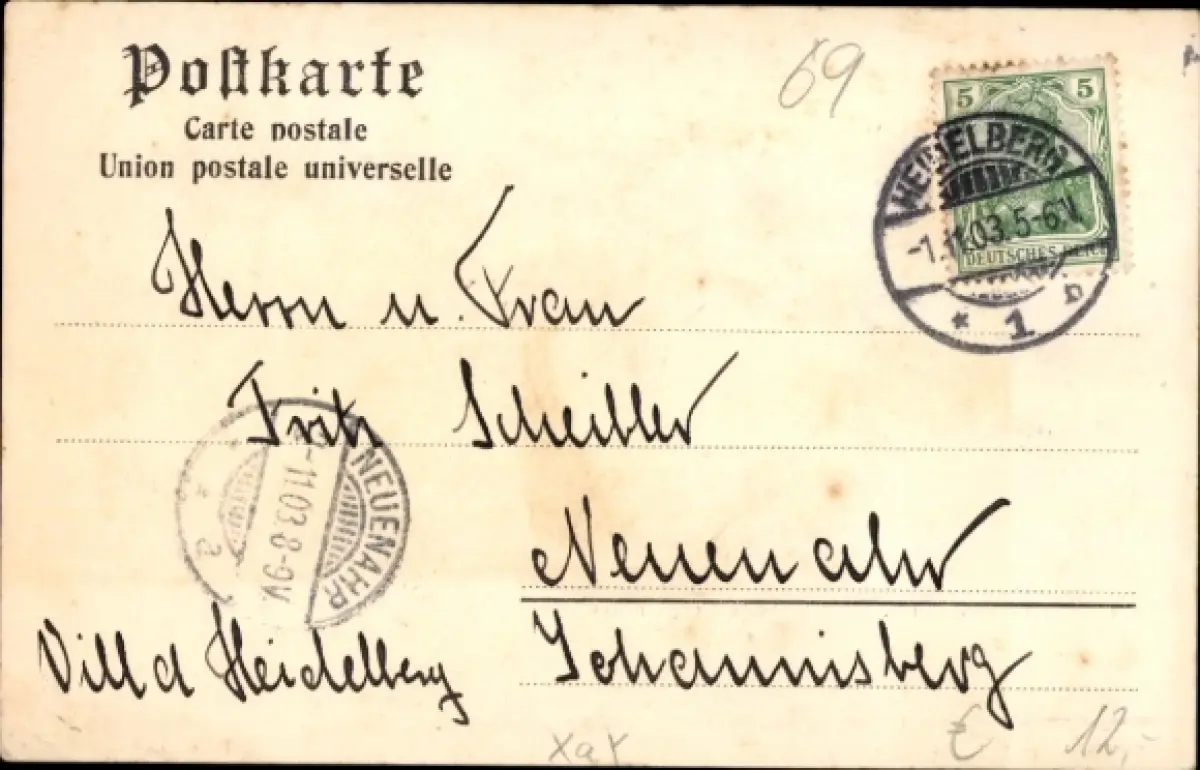 Postkarte
Carte postale
Union postale universelle
69
5 5
HEIDELBERG
-1.11.03.5-6V.
DEUTSCHES REICH
* 1 b
Herrn u. Frau
Fritz Scheibler
NEUENAHR
-11.03.8-9V.
* a
Neuenahr
Villa Heidelberg
Johannisberg
xax
€ 12,-